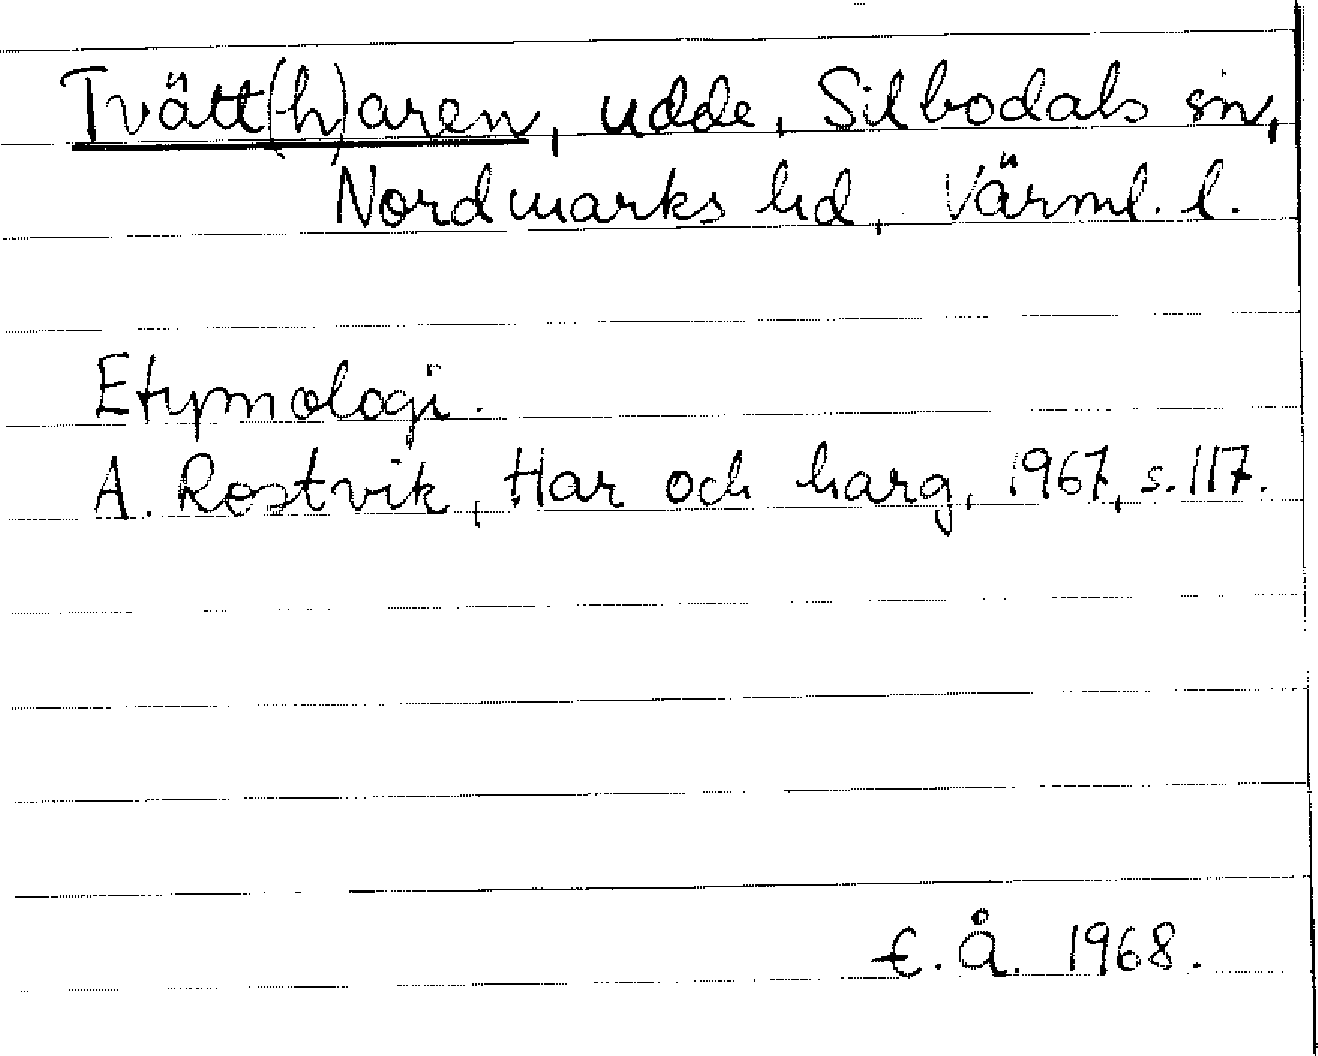 Tvätt(h)aren, udde, Silbodals sn,
Nordmarks hd, Värml. l.
Etymologi.
A. Rostvik, Har och harg, 1967, s. 117.
E. Å. 1968.